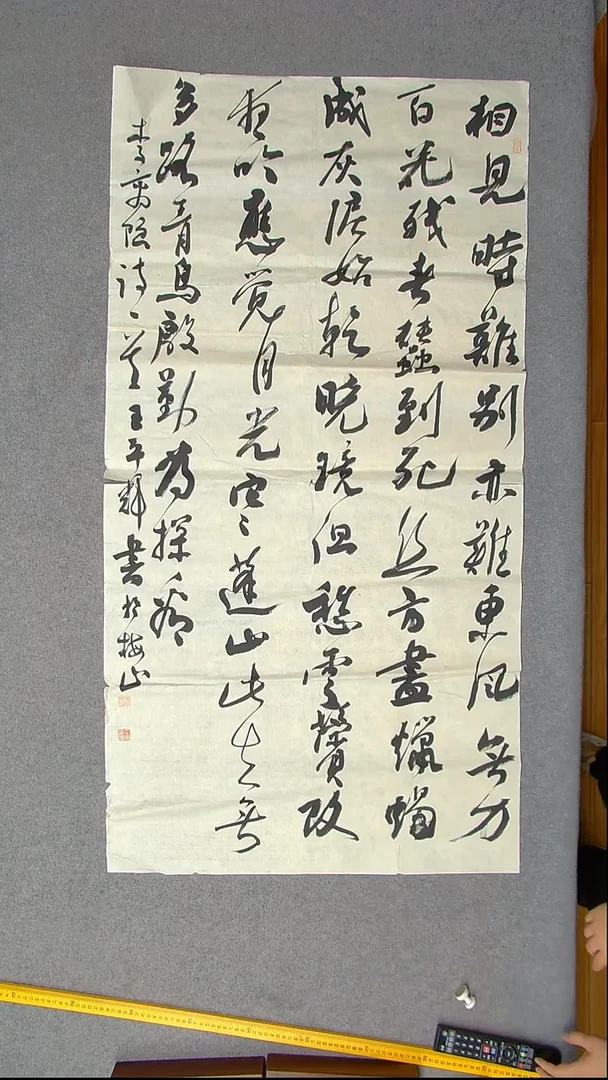 相見時難別亦難東風無力
百花殘春蠶到死丝方盡蠟燭
成灰淚始乾曉鏡但愁雲鬢改
夜吟應覺月光寒蓬山此去無
多路青鳥殷勤為探看
李商隐詩一首王平輝書於梅山